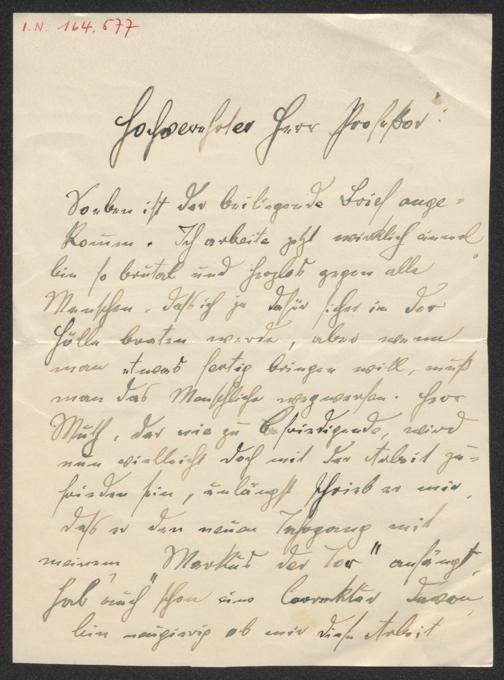 I.N. 164.577
Hochverehrter Herr Professor!
Soeben ist der beiliegende Brief ange=
kommen. Ich arbeite jetzt wirklich einmal
bin so brutal und herzlos gegen alle
Menschen, daß ich ja dafür sicher in der
Hölle braten werde, aber wenn
man etwas fertig bringen will, muß
man das Menschliche wegwerfen. Herr
Muth, der nie zu befriedigende, wird
nun vielleicht doch mit der Arbeit zu=
frieden sein, unlängst schrieb er mir,
daß er den neuen Jahrgang mit
meinem "Markus der Tor" anfängt,
hab auch schon eine Correktur davon,
bin neugierig ob mir diese Arbeit